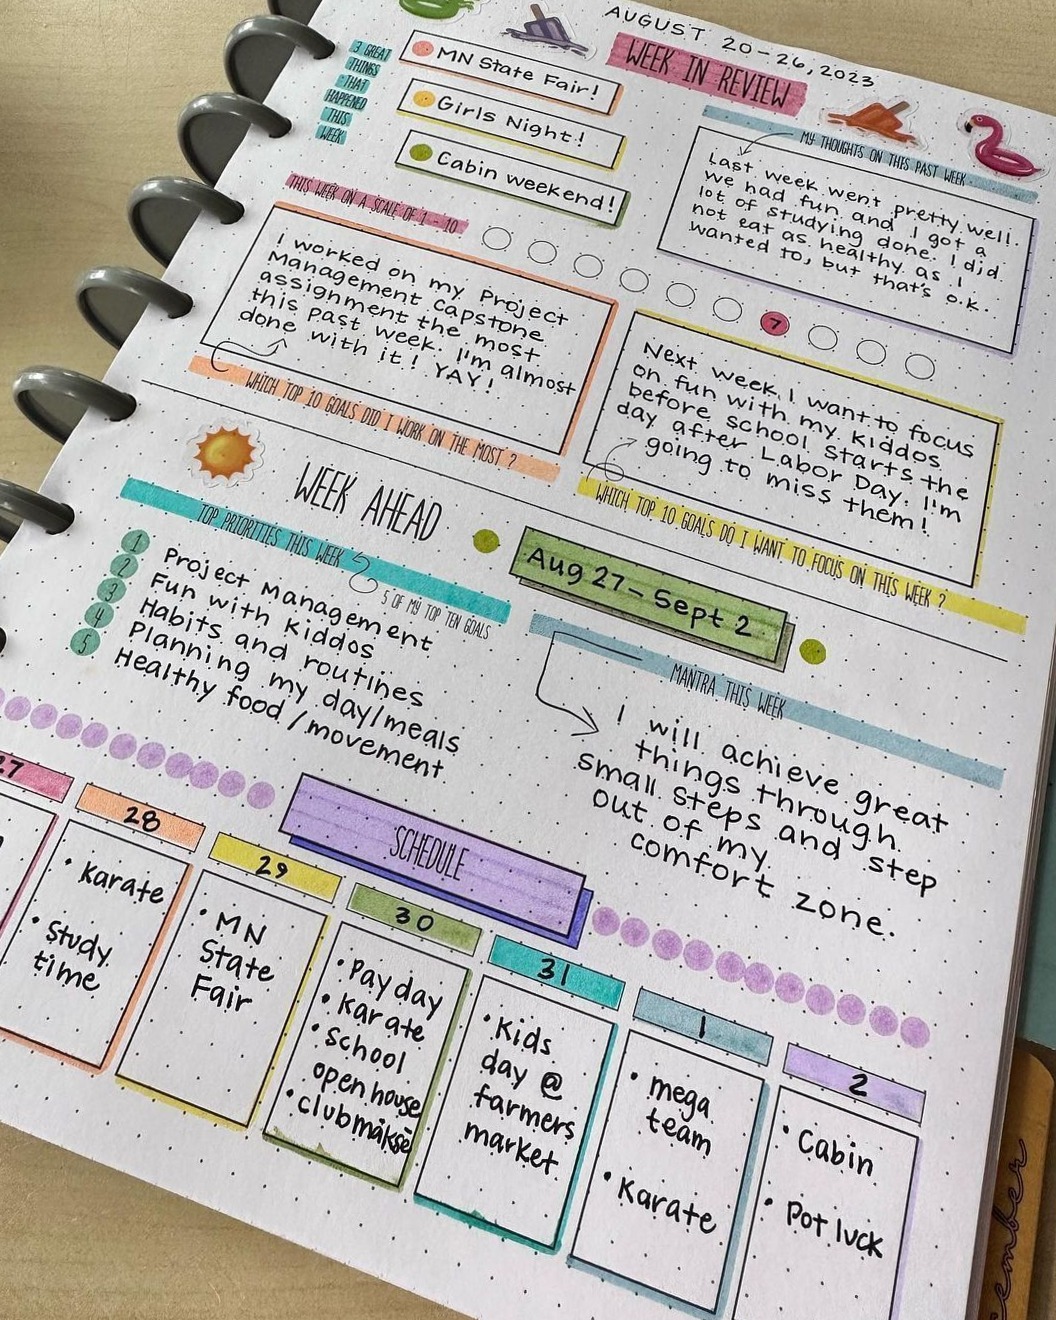 AUGUST 20-26, 2023
WEEK IN REVIEW
3 GREAT
THINGS
THAT
HAPPENED
THIS
WEEK
MN State Fair!
Girls Night!
Cabin weekend!
MY THOUGHTS ON THIS PAST WEEK
Last week went pretty well.
we had fun and I got a
lot of studying done. I did
not eat as healthy as I
wanted to, but that's o.k.
THIS WEEK ON A SCALE OF 1 - 10
7
I worked on my Project
Management Capstone
assignment the most
this past week. I'm almost
done with it! YAY!
WHICH TOP 10 GOALS DID I WORK ON THE MOST?
Next week, I want to focus
on fun with my kiddos
before school starts the
day after Labor Day. I'm
going to miss them!
WHICH TOP 10 GOALS DO I WANT TO FOCUS ON THIS WEEK?
WEEK AHEAD
Aug 27-Sept 2
TOP PRIORITIES THIS WEEK
5 OF MY TOP TEN GOALS
1 Project Management
2 Fun with kiddos
3 Habits and routines
4 Planning my day/meals
5 Healthy food/movement
MANTRA THIS WEEK
I will achieve great
things through
small steps and step
out of my
comfort zone.
SCHEDULE
27
28
• Karate
• Study
time
29
• MN
State
Fair
30
• Pay day
• Karate
• school
open house
• clubmäksē
31
• Kids
day @
farmers
market
1
• mega
team
• Karate
2
• Cabin
• Pot luck